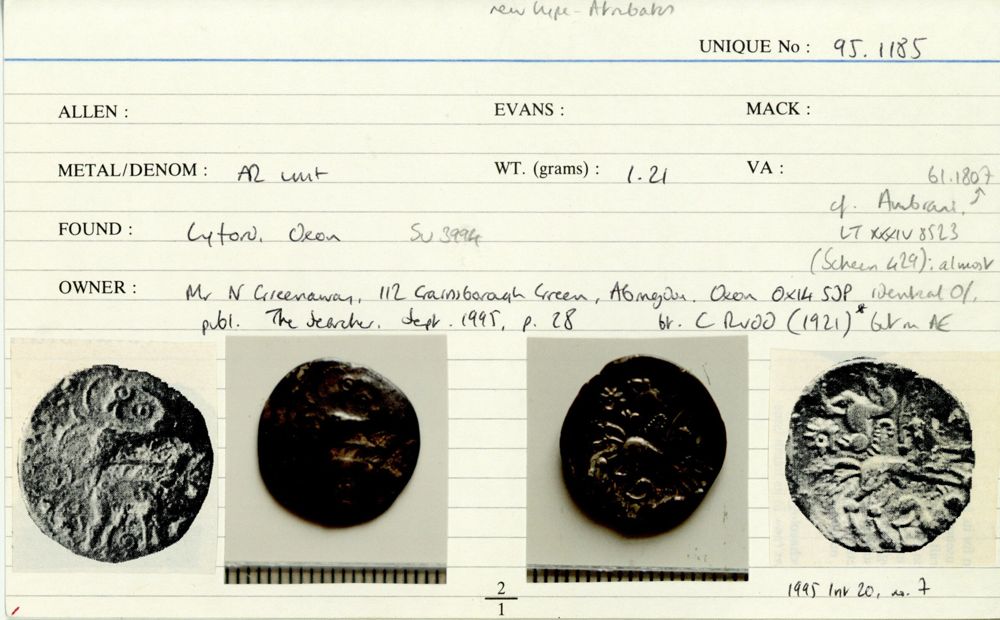 new type - Atrebates
UNIQUE No : 95.1185
ALLEN : EVANS : MACK :
METAL/DENOM : AR unit WT. (grams) : 1.21 VA :
61.1807
cf. Ambiani,
FOUND : Lyford, Oxon SU 3994 LT XXXIV 8523
(Scheers 429): almost
OWNER : Mr N Greenaway, 112 Gainsborough Green, Abingdon, Oxon OX14 5JP identical O/,
publ. The Searcher, Sept. 1995, p. 28 bt. C Rudd (1921)* but in AE
2
1
1995 Inv 20, no. 7